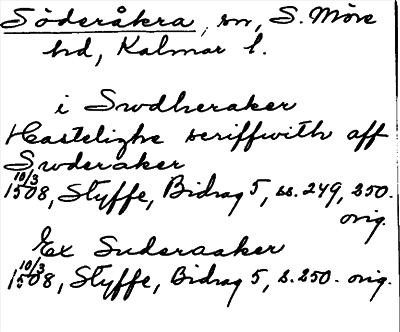 Söderåkra, sn, S. Möre
hd, Kalmar l.
i Swdheraker
Hastelighe scriffwith aff
Swderaker
10/3 1508, Styffe, Bidrag 5, ss. 249, 250.
orig.
Ex Suderaaker
10/3 1508, Styffe, Bidrag 5, s. 250. orig.